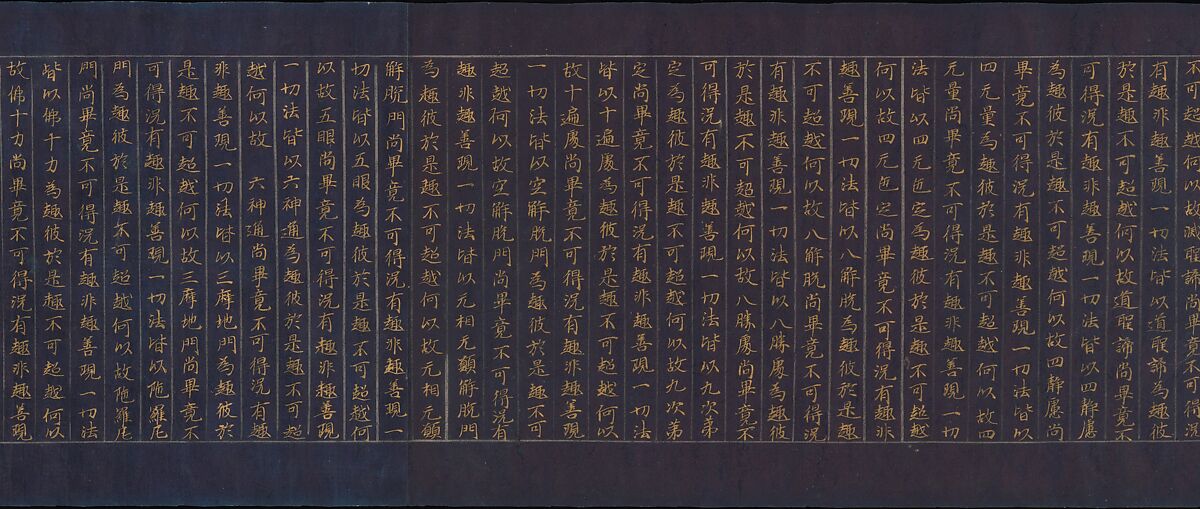 不可超越何以故滅聖諦尚畢竟不可得況
有趣非趣善現一切法皆以道聖諦為趣彼
於是趣不可超越何以故道聖諦尚畢竟不
可得況有趣非趣善現一切法皆以四靜慮
為趣彼於是趣不可超越何以故四靜慮尚
畢竟不可得況有趣非趣善現一切法皆以
四无量為趣彼於是趣不可超越何以故四
无量尚畢竟不可得況有趣非趣善現一切
法皆以四无色定為趣彼於是趣不可超越
何以故四无色定尚畢竟不可得況有趣非
趣善現一切法皆以八解脫為趣彼於是趣
不可超越何以故八解脫尚畢竟不可得況
有趣非趣善現一切法皆以八勝處為趣彼
於是趣不可超越何以故八勝處尚畢竟不
可得況有趣非趣善現一切法皆以九次第
定為趣彼於是趣不可超越何以故九次第
定尚畢竟不可得況有趣非趣善現一切法
皆以十遍處為趣彼於是趣不可超越何以
故十遍處尚畢竟不可得況有趣非趣善現
一切法皆以空解脫門為趣彼於是趣不可
超越何以故空解脫門尚畢竟不可得況有
趣非趣善現一切法皆以无相无願解脫門
為趣彼於是趣不可超越何以故无相无願
解脫門尚畢竟不可得況有趣非趣善現一
切法皆以五眼為趣彼於是趣不可超越何
以故五眼尚畢竟不可得況有趣非趣善現
一切法皆以六神通為趣彼於是趣不可超
越何以故 六神通尚畢竟不可得況有趣
非趣善現一切法皆以三摩地門為趣彼於
是趣不可超越何以故三摩地門尚畢竟不
可得況有趣非趣善現一切法皆以陁羅尼
門為趣彼於是趣不可超越何以故陁羅尼
門尚畢竟不可得況有趣非趣善現一切法
皆以佛十力為趣彼於是趣不可超越何以
故佛十力尚畢竟不可得況有趣非趣善現